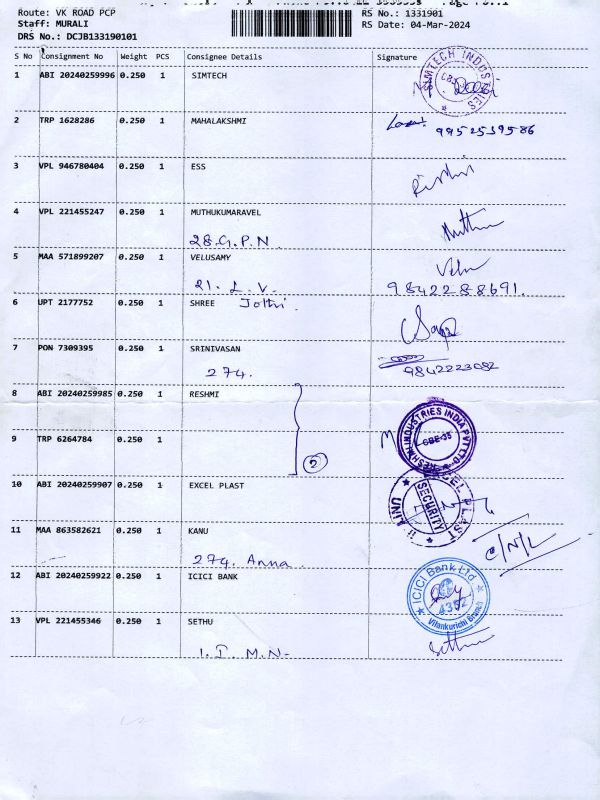 Route: VK ROAD PCP
RS No.: 1331901
Staff: MURALI
RS Date: 04-Mar-2024
DRS No.: DCJB133190101
S No Consignment No Weight PCS Consignee Details Signature
1 ABI 20240259996 0.250 1 SIMTECH
SIMTECH INDUSTRIES
2 TRP 1628286 0.250 1 MAHALAKSHMI
9952539586
3 VPL 946780404 0.250 1 ESS
Rishi
4 VPL 221455247 0.250 1 MUTHUKUMARAVEL
28.G.P.N. Muthu
5 MAA 571899207 0.250 1 VELUSAMY
21. L.V. 9842288691.
6 UPT 2177752 0.250 1 SHREE Jothi
7 PON 7309395 0.250 1 SRINIVASAN
274. 9842223082
8 ABI 20240259985 0.250 1 RESHMI
RESHMI INDUSTRIES INDIA PVT LTD
CBE-35
9 TRP 6264784 0.250 1
2
10 ABI 20240259907 0.250 1 EXCEL PLAST
EXCEL PLAST
SECURITY
C/N/L
11 MAA 863582621 0.250 1 KANU
274. Anna
12 ABI 20240259922 0.250 1 ICICI BANK
ICICI Bank Ltd
4352
Vilankurichi Branch
13 VPL 221455346 0.250 1 SETHU
1. I. M.N. Sethu